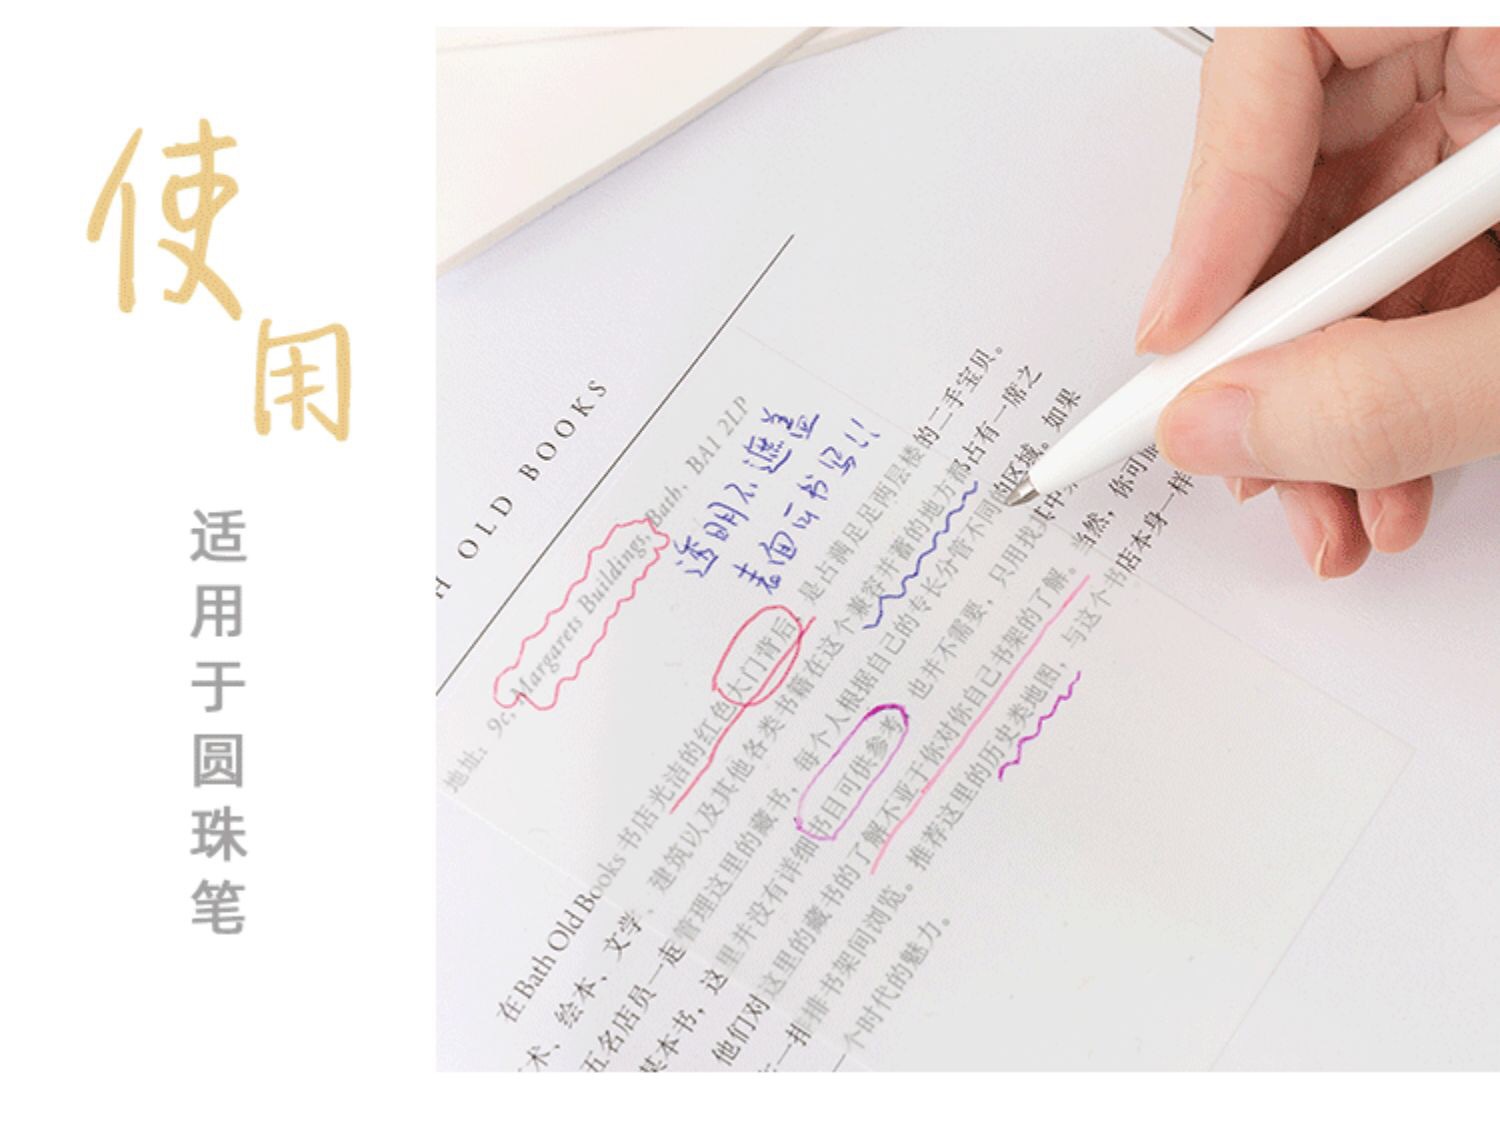 使用
适用于圆珠笔
H OLD BOOKS
地址：9c, Margarets Buildings, Bath, BA1 2LP
透明不遮盖
表面可书写!!
在Bath Old Books 书店光洁的红色大门背后，是占满足足两层楼的二手宝贝。
术、绘本、文学、建筑以及其他各类书籍在这个兼容并蓄的地方都占有一席之
五名店员一起管理这里的藏书，每个人根据自己的专长分管不同的区域。如果
某本书，这里并没有详细书目可供参考，也并不需要，只用找其中
他们对这里的藏书的了解不亚于你对你自己书架的了解。当然，你可
一排排书架间浏览。推荐这里的历史类地图，与这个书店本身一样
一个时代的魅力。